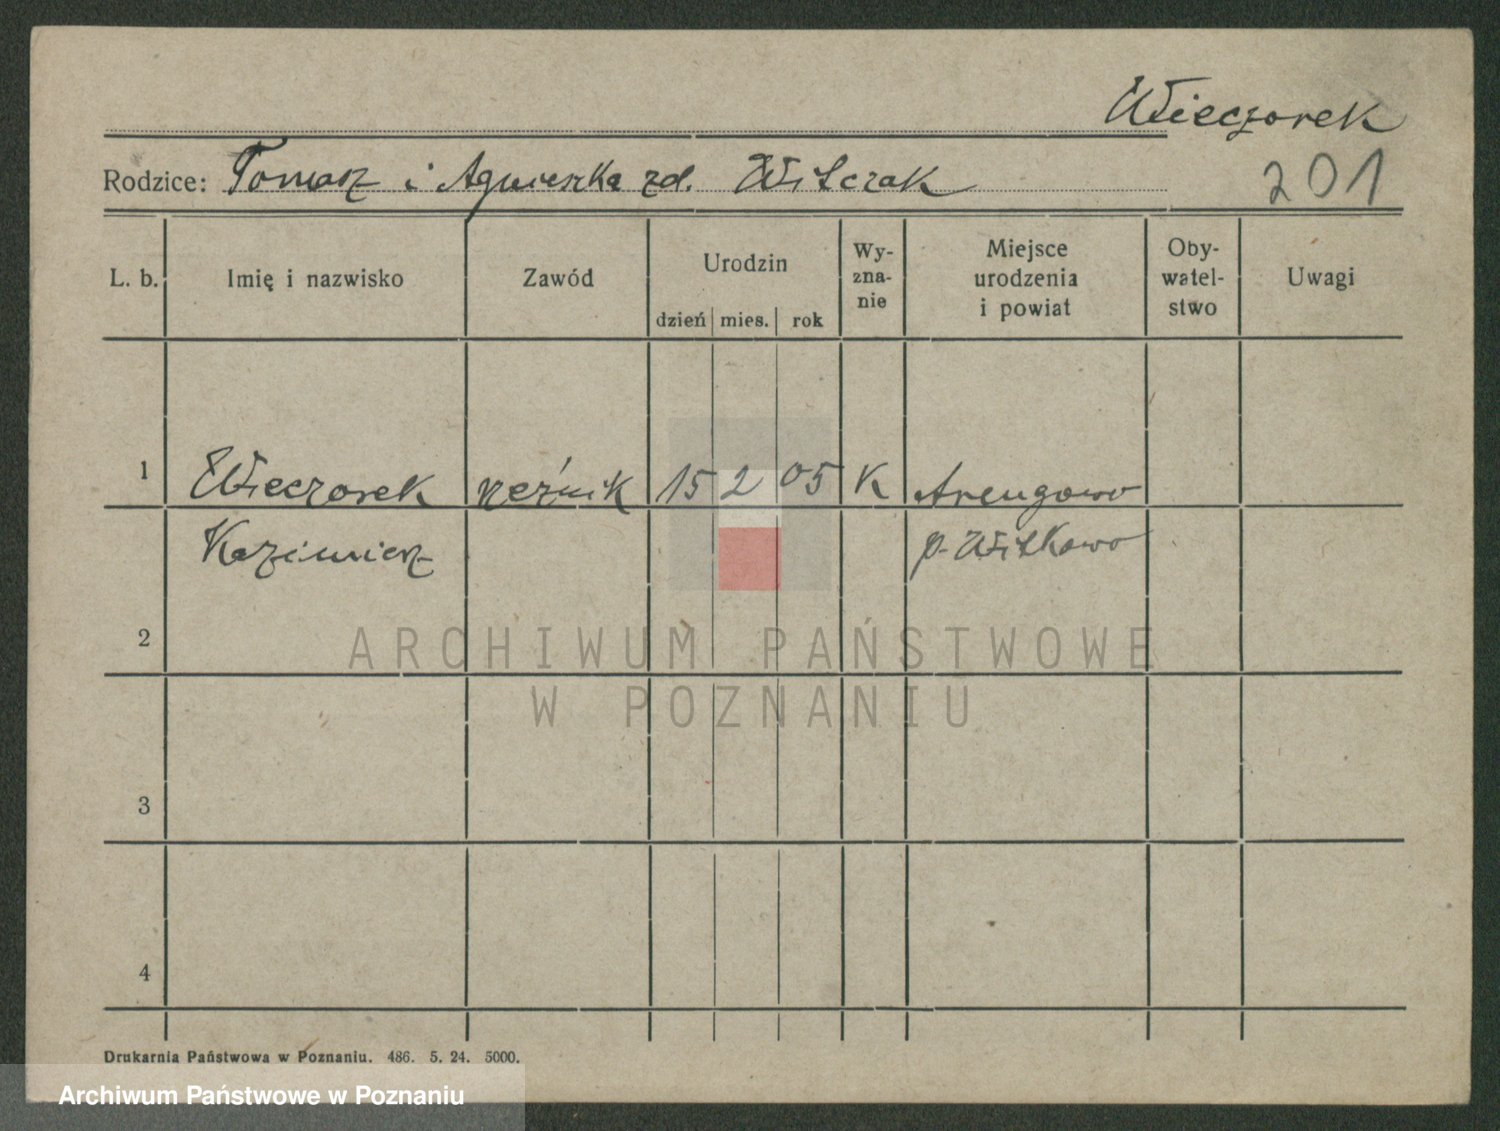 Wieczorek
Rodzice: Tomasz i Agnieszka zd. Witczak
201
L. b. Imię i nazwisko Zawód Urodzin dzień mies. rok Wy-zna-nie Miejsce urodzenia i powiat Oby-watel-stwo Uwagi
1 Wieczorek rzeźnik 15 2 05 K
Kazimierz p. Witkowo
2
ARCHIWUM PAŃSTWOWE
W POZNANIU
3
4
Drukarnia Państwowa w Poznaniu. 486. 5. 24. 5000.
Archiwum Państwowe w Poznaniu